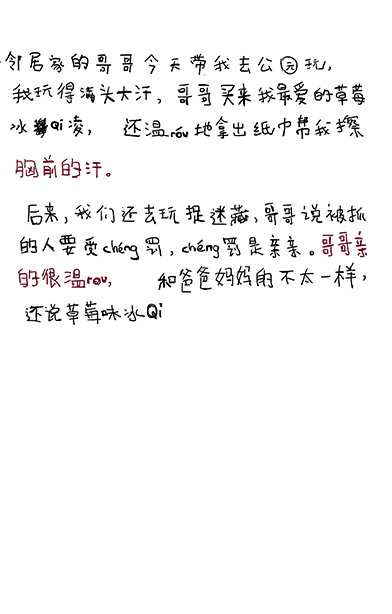 邻居家的哥哥今天带我去公园玩，
我玩得满头大汗，哥哥买来我最爱的草莓
冰Qi凌，还温róu地拿出纸巾帮我擦
胸前的汗。
后来，我们还去玩捉迷藏，哥哥说被抓
的人要受chéng罚，chéng罚是亲亲。哥哥亲
的很温rou，和爸爸妈妈的不太一样，
还说草莓味冰Qi